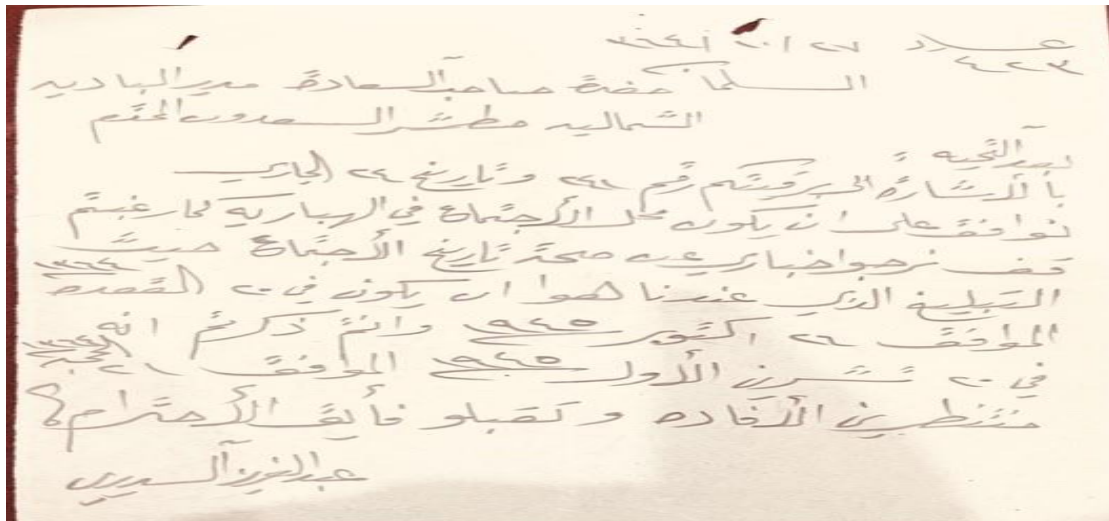 عدد ٤٢٣ ٢٧ / ١٠ / ٣٦٤
السلمان حضرة صاحب السعادة مدير البادية
الشمالية مطشر السعدون المحترم
بعد التحية
بالأشارة الى برقيتكم رقم ٢٤١ وتاريخ ٢٤ الجاري
نوافق على ان يكون محل الأجتماع في الهبارية كما رغبتم
قف نرجوا اخباري عن صحة تاريخ الأجتماع حيث
التبليغ الذي عندنا هوا ان يكون في ٢٠ القعده ١٣٦٤
الموافق ٢٦ اكتوبر ١٩٤٥ وانتم ذكرتم انه
في ٢٠ تشرين الأول ١٩٤٥ الموافق ٢١ الحجة ١٣٦٤
منتظرين الأفاده وتقبلو فأيق الأحترام
عبدالعزيز السديري